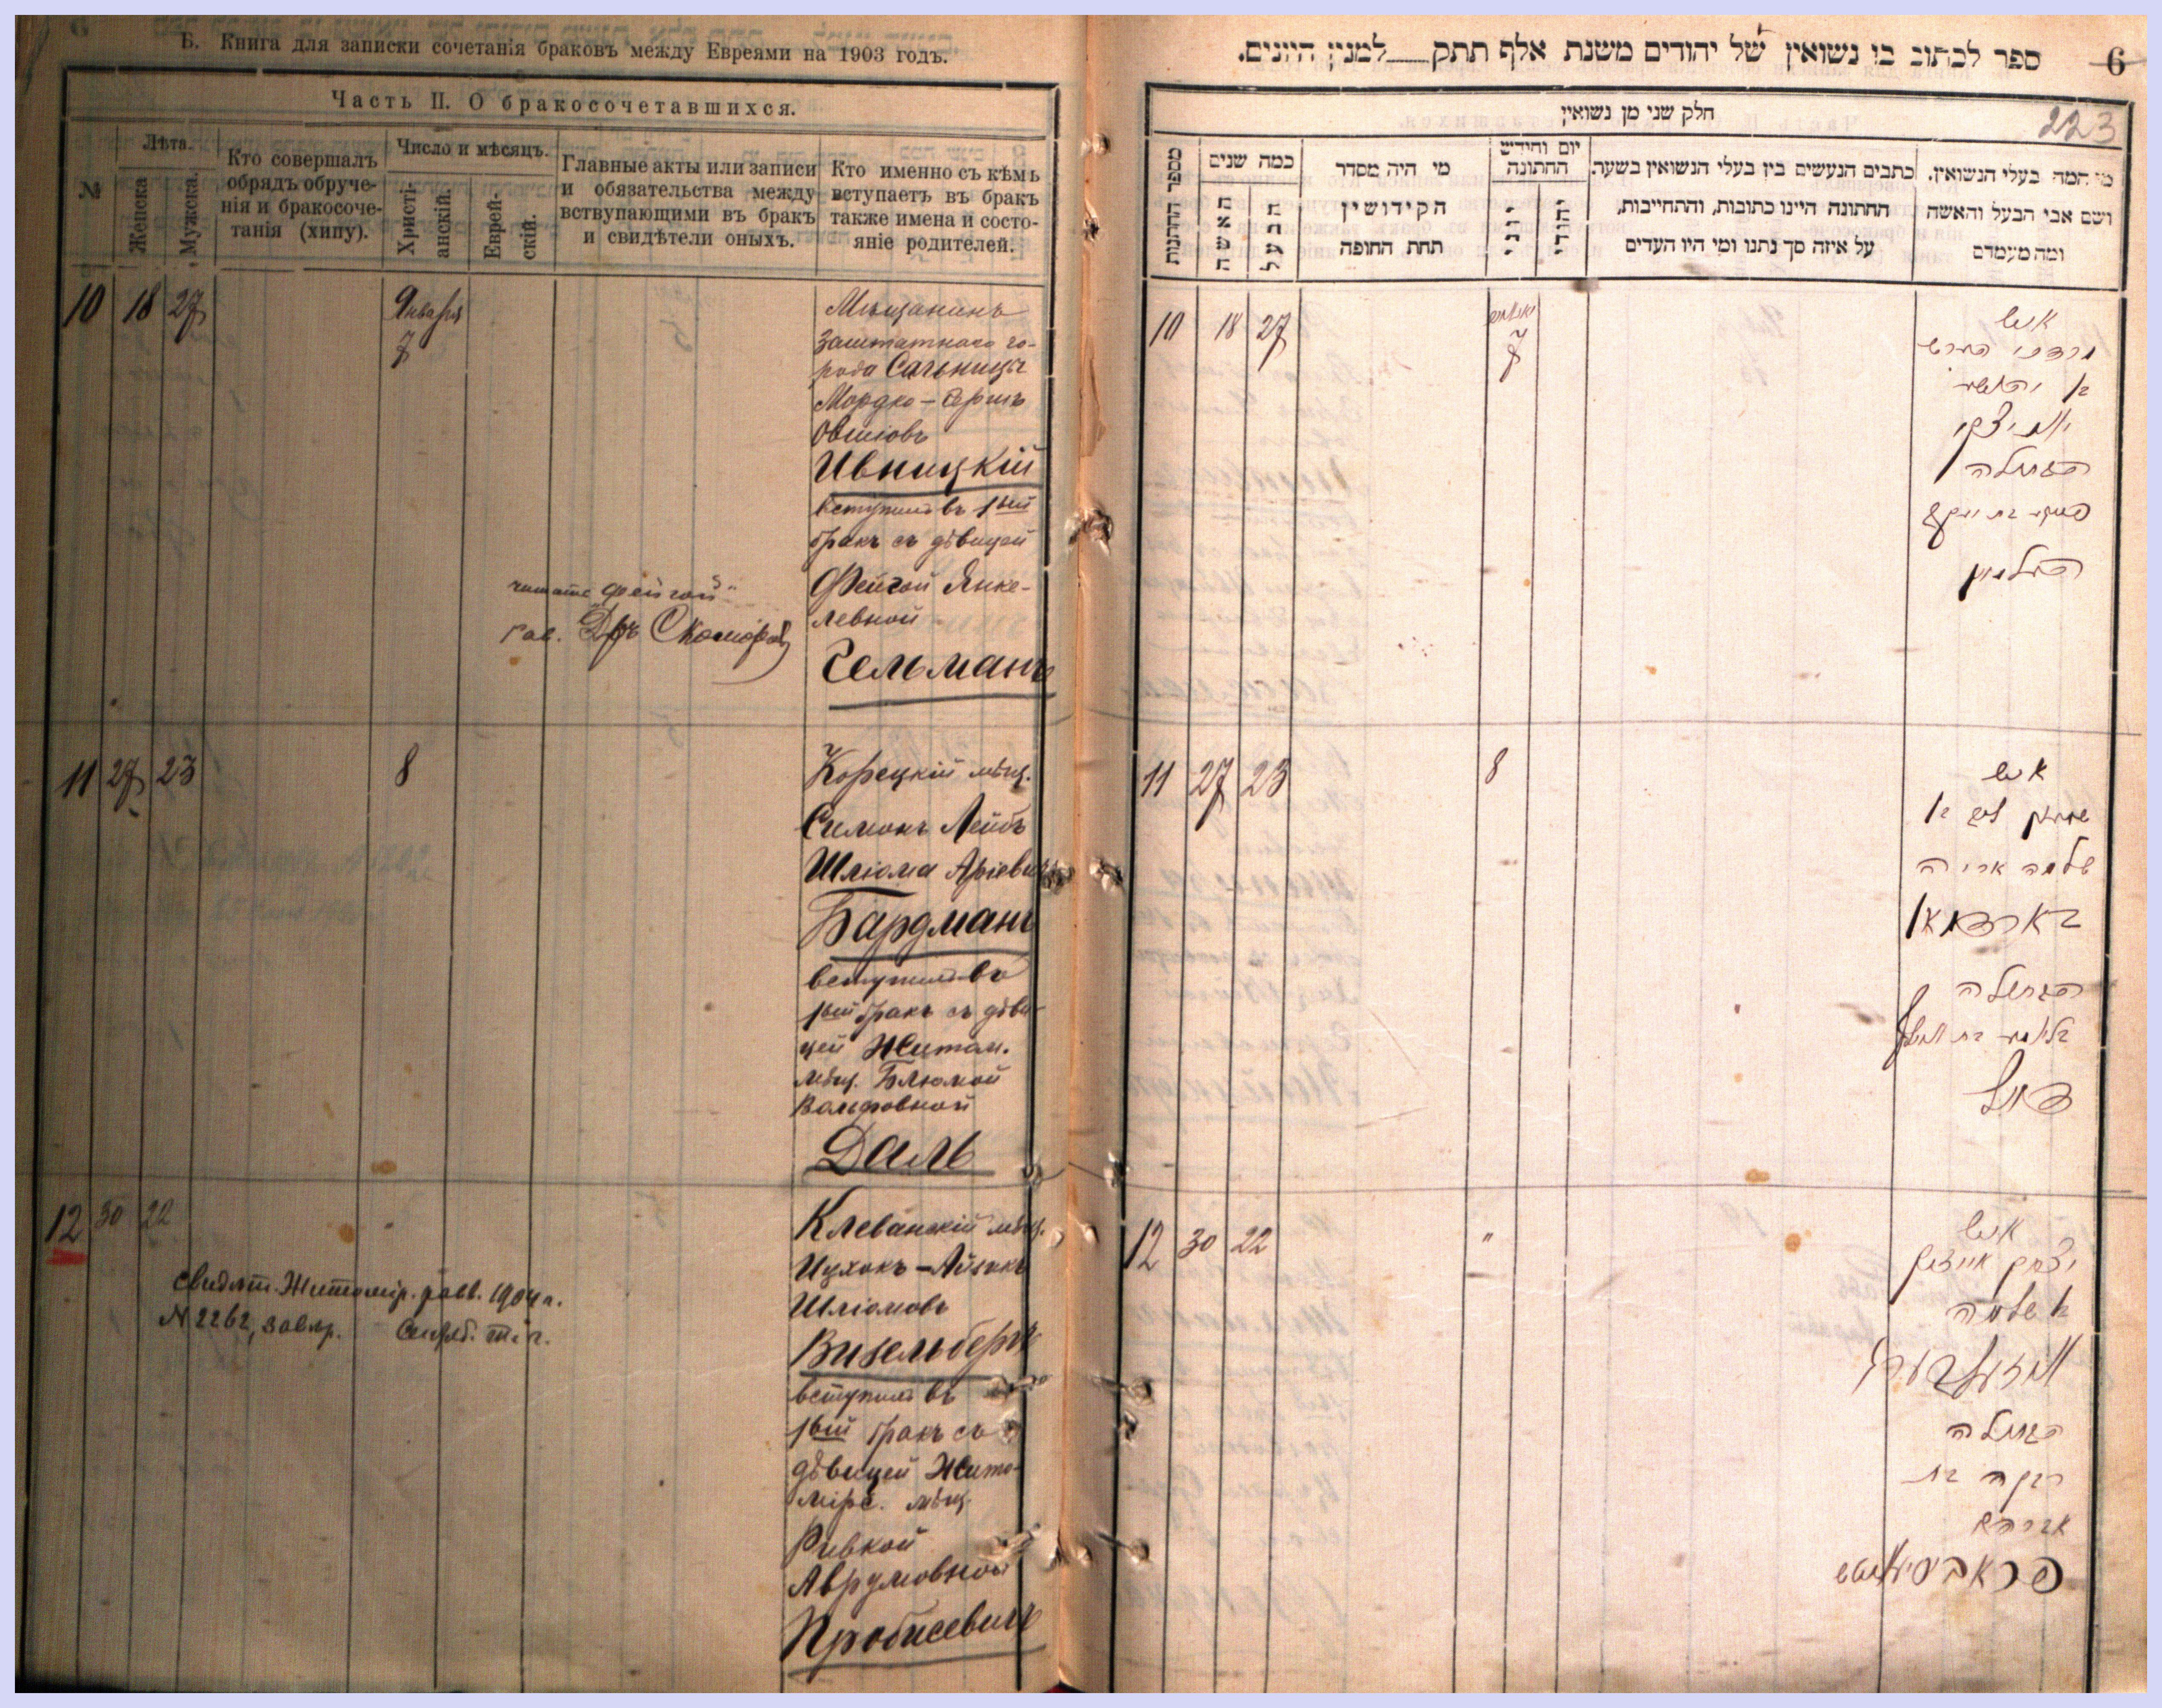 Б. Книга для записки сочетанія браковъ между Евреями на 1903 годъ.
Часть II. О бракосочетавшихся.
№
Лѣта.
Женска
Мужска.
Кто совершалъ
обрядъ обруче-
нія и бракосоче-
танія (хипу).
Число и мѣсяцъ.
Христі-
анскій.
Еврей-
скій.
Главные акты или записи
и обязательства между
вствупающими въ бракъ
и свидѣтели оныхъ.
Кто именно съ кѣмъ
вступаетъ въ бракъ
также имена и состо-
яніе родителей.
10 18 27
Января
7
Мѣщанинъ
Заштатнаго го-
рода Сальницы
Мордко-Гершъ
Овшіовъ
Ивницкій
вступилъ въ 1ый
бракъ съ дѣвицей
Фейгой Янке-
левной
Гельманъ
читать „Фейгой"
11 27 23
8
Корецкій мѣщ.
Симонъ Лейбъ
Шліома Аріевъ
Бардманъ
вступилъ въ
1ый бракъ съ дѣви-
цей Житом.
мѣщ. Блюмой
Вольфовной
Даль
12 30 22
"
Клеванскій мѣщ.
Ицхокъ-Айзикъ
Шліомовъ
Визельбергъ
вступилъ въ
1ый бракъ съ
дѣвицей Жито-
мірс. мѣщ.
Ривкой
Аврумовной
Пробисевичъ
свидѣт. Житомір. равв. 1904 г.
N 2262,
6
ספר לכתוב בו נשואין של יהודים משנת אלף תתק למנין היונים.
223
חלק שני מן נשואין
מספר הזווגות
כמה שנים
האשה
הבעל
מי היה מסדר
הקידושין
תחת החופה
יום וחודש
החתונה
יוני
יהודי
כתבים הנעשים בין בעלי הנשואין בשער.
החתונה היינו כתובות, והתחייבות,
על איזה סך נתנו ומי היו העדים
מי המה בעלי הנשואין.
ושם אבי הבעל והאשה
ומה מעמדם
10 18 27
7
איש
הבתולה
11 27 23
8
איש
שלמה אריה
בארדמאן
הבתולה
דאל
12 30 22
"
איש
יצחק אייזיק
ב שלמה
הבתולה
רבקה בת
אברהם